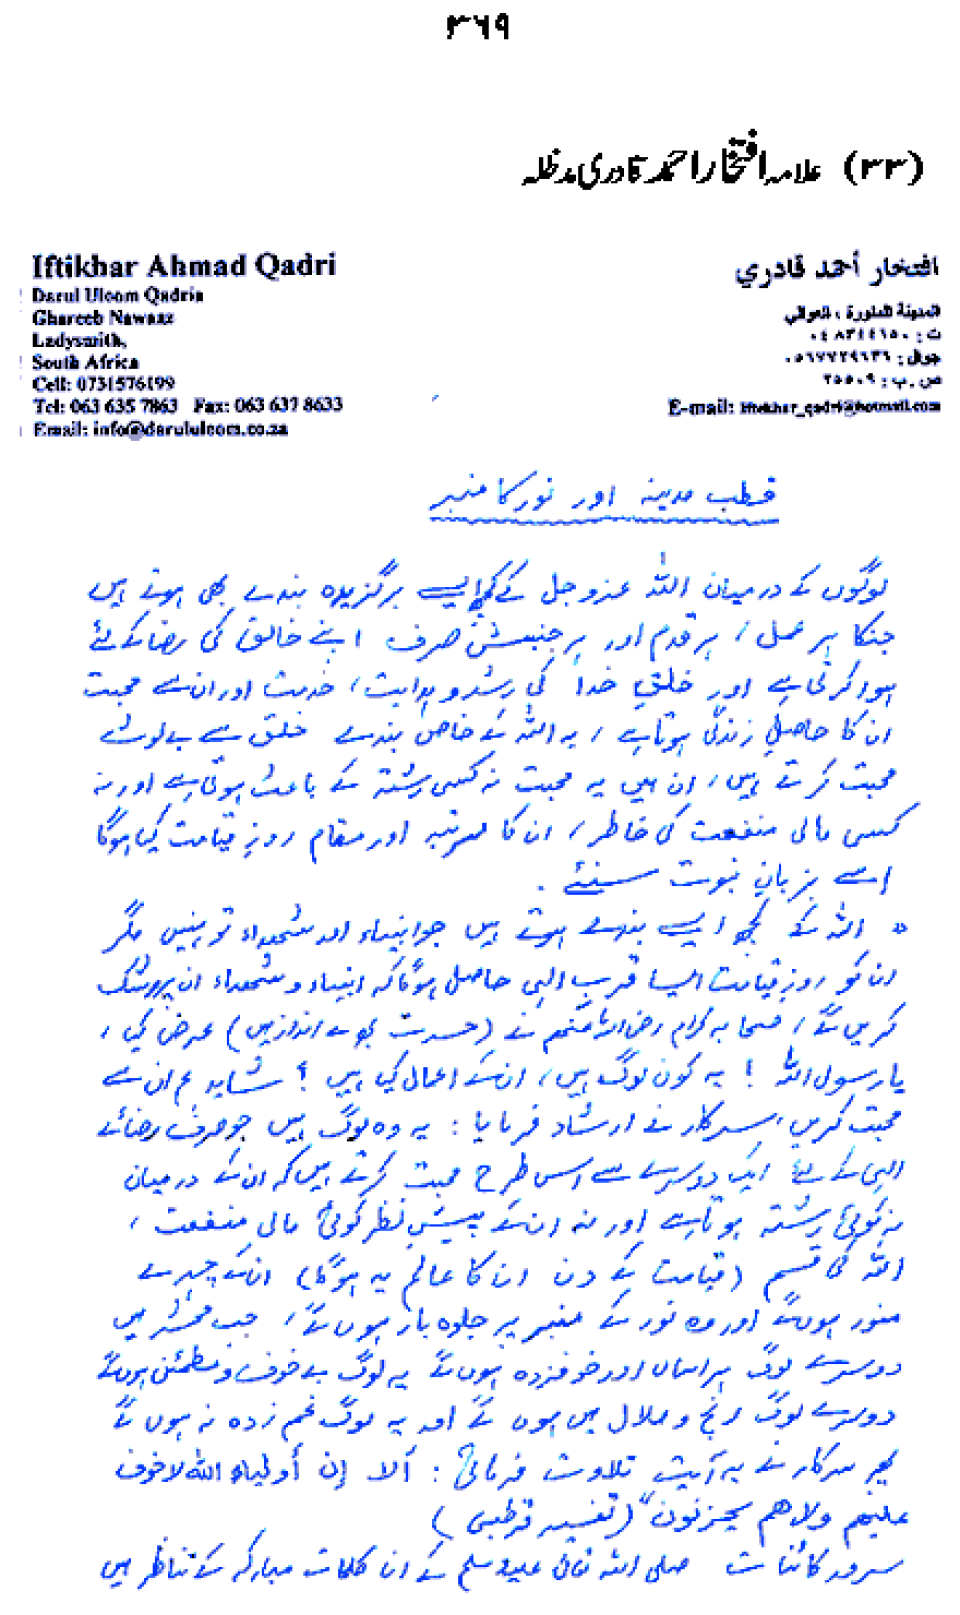 ۳۶۹
(۳۳) علامہ افتخار احمد قادری مدظلہ
Iftikhar Ahmad Qadri
Darul Uloom Qadria
Ghareeb Nawaaz
Ladysmith,
South Africa
Cell: 0731576199
Tel: 063 635 7863 Fax: 063 637 8633
Email: info@darululoom.co.za
افتخار أحمد قادري
المدينة المنورة ، العوالي
ت : ٠٤٨٣٤٤٦٥٠
جوال : ٠٥٦٧٧٢٩٦٣٦
ص . ب : ٢٥٥٠٩
E-mail: iftekhar_qadri@hotmail.com
قطب مدینہ اور نور کا منبر
لوگوں کے درمیان اللہ عزوجل کے کچھ ایسے برگزیدہ بندے بھی ہوتے ہیں
جنکا ہر عمل، ہر قدم اور ہر جنبش صرف اپنے خالق کی رضا کے لئے
ہوا کرتی ہے اور خلقِ خدا کی رشد و ہدایت، خدمت اور ان سے محبت
ان کا حاصلِ زندگی ہوتا ہے، یہ اللہ کے خاص بندے خلق سے بے لوث
محبت کرتے ہیں، ان میں یہ محبت نہ کسی رشتہ کے باعث ہوتی ہے اور نہ
کسی مالی منفعت کی خاطر، ان کا مرتبہ اور مقام روزِ قیامت کیا ہوگا
اسے بزبانِ نبوت سنئے .
° اللہ کے کچھ ایسے بندے ہوتے ہیں جو انبیاء اور شھداء تو نہیں مگر
ان کو روزِ قیامت ایسا قرب الہی حاصل ہوگا کہ انبیاء و شھداء ان پر رشک
کریں گے، صحابہ کرام رضی اللہ عنہم نے (حسرت بھرے انداز میں) عرض کی،
یا رسول اللہ ! یہ کون لوگ ہیں، ان کے اعمال کیا ہیں ؟ شاید ہم ان سے
محبت کریں، سرکار نے ارشاد فرمایا : یہ وہ لوگ ہیں جو صرف رضائے
الہی کے لئے ایک دوسرے سے اس طرح محبت کرتے ہیں کہ ان کے درمیان
نہ کوئی رشتہ ہوتا ہے اور نہ ان کے پیشِ نظر کوئی مالی منفعت،
اللہ کی قسم (قیامت کے دن ان کا عالم یہ ہوگا) ان کے چہرے
منور ہوں گے اور وہ نور کے منبر پر جلوہ بار ہوں گے، جب محشر میں
دوسرے لوگ ہراساں اور خوفزدہ ہوں گے یہ لوگ بے خوف و مطمئن ہوں گے
دوسرے لوگ رنج و ملال میں ہوں گے اور یہ لوگ غم زدہ نہ ہوں گے
پھر سرکار نے یہ آیت تلاوت فرمائی : ألا إن أولياء الله لا خوف
عليهم ولا هم يحزنون" (تفسیر قرطبی)
سرور کائنات صلی اللہ تعالی علیہ وسلم کے ان کلمات مبارکہ کے تناظر میں